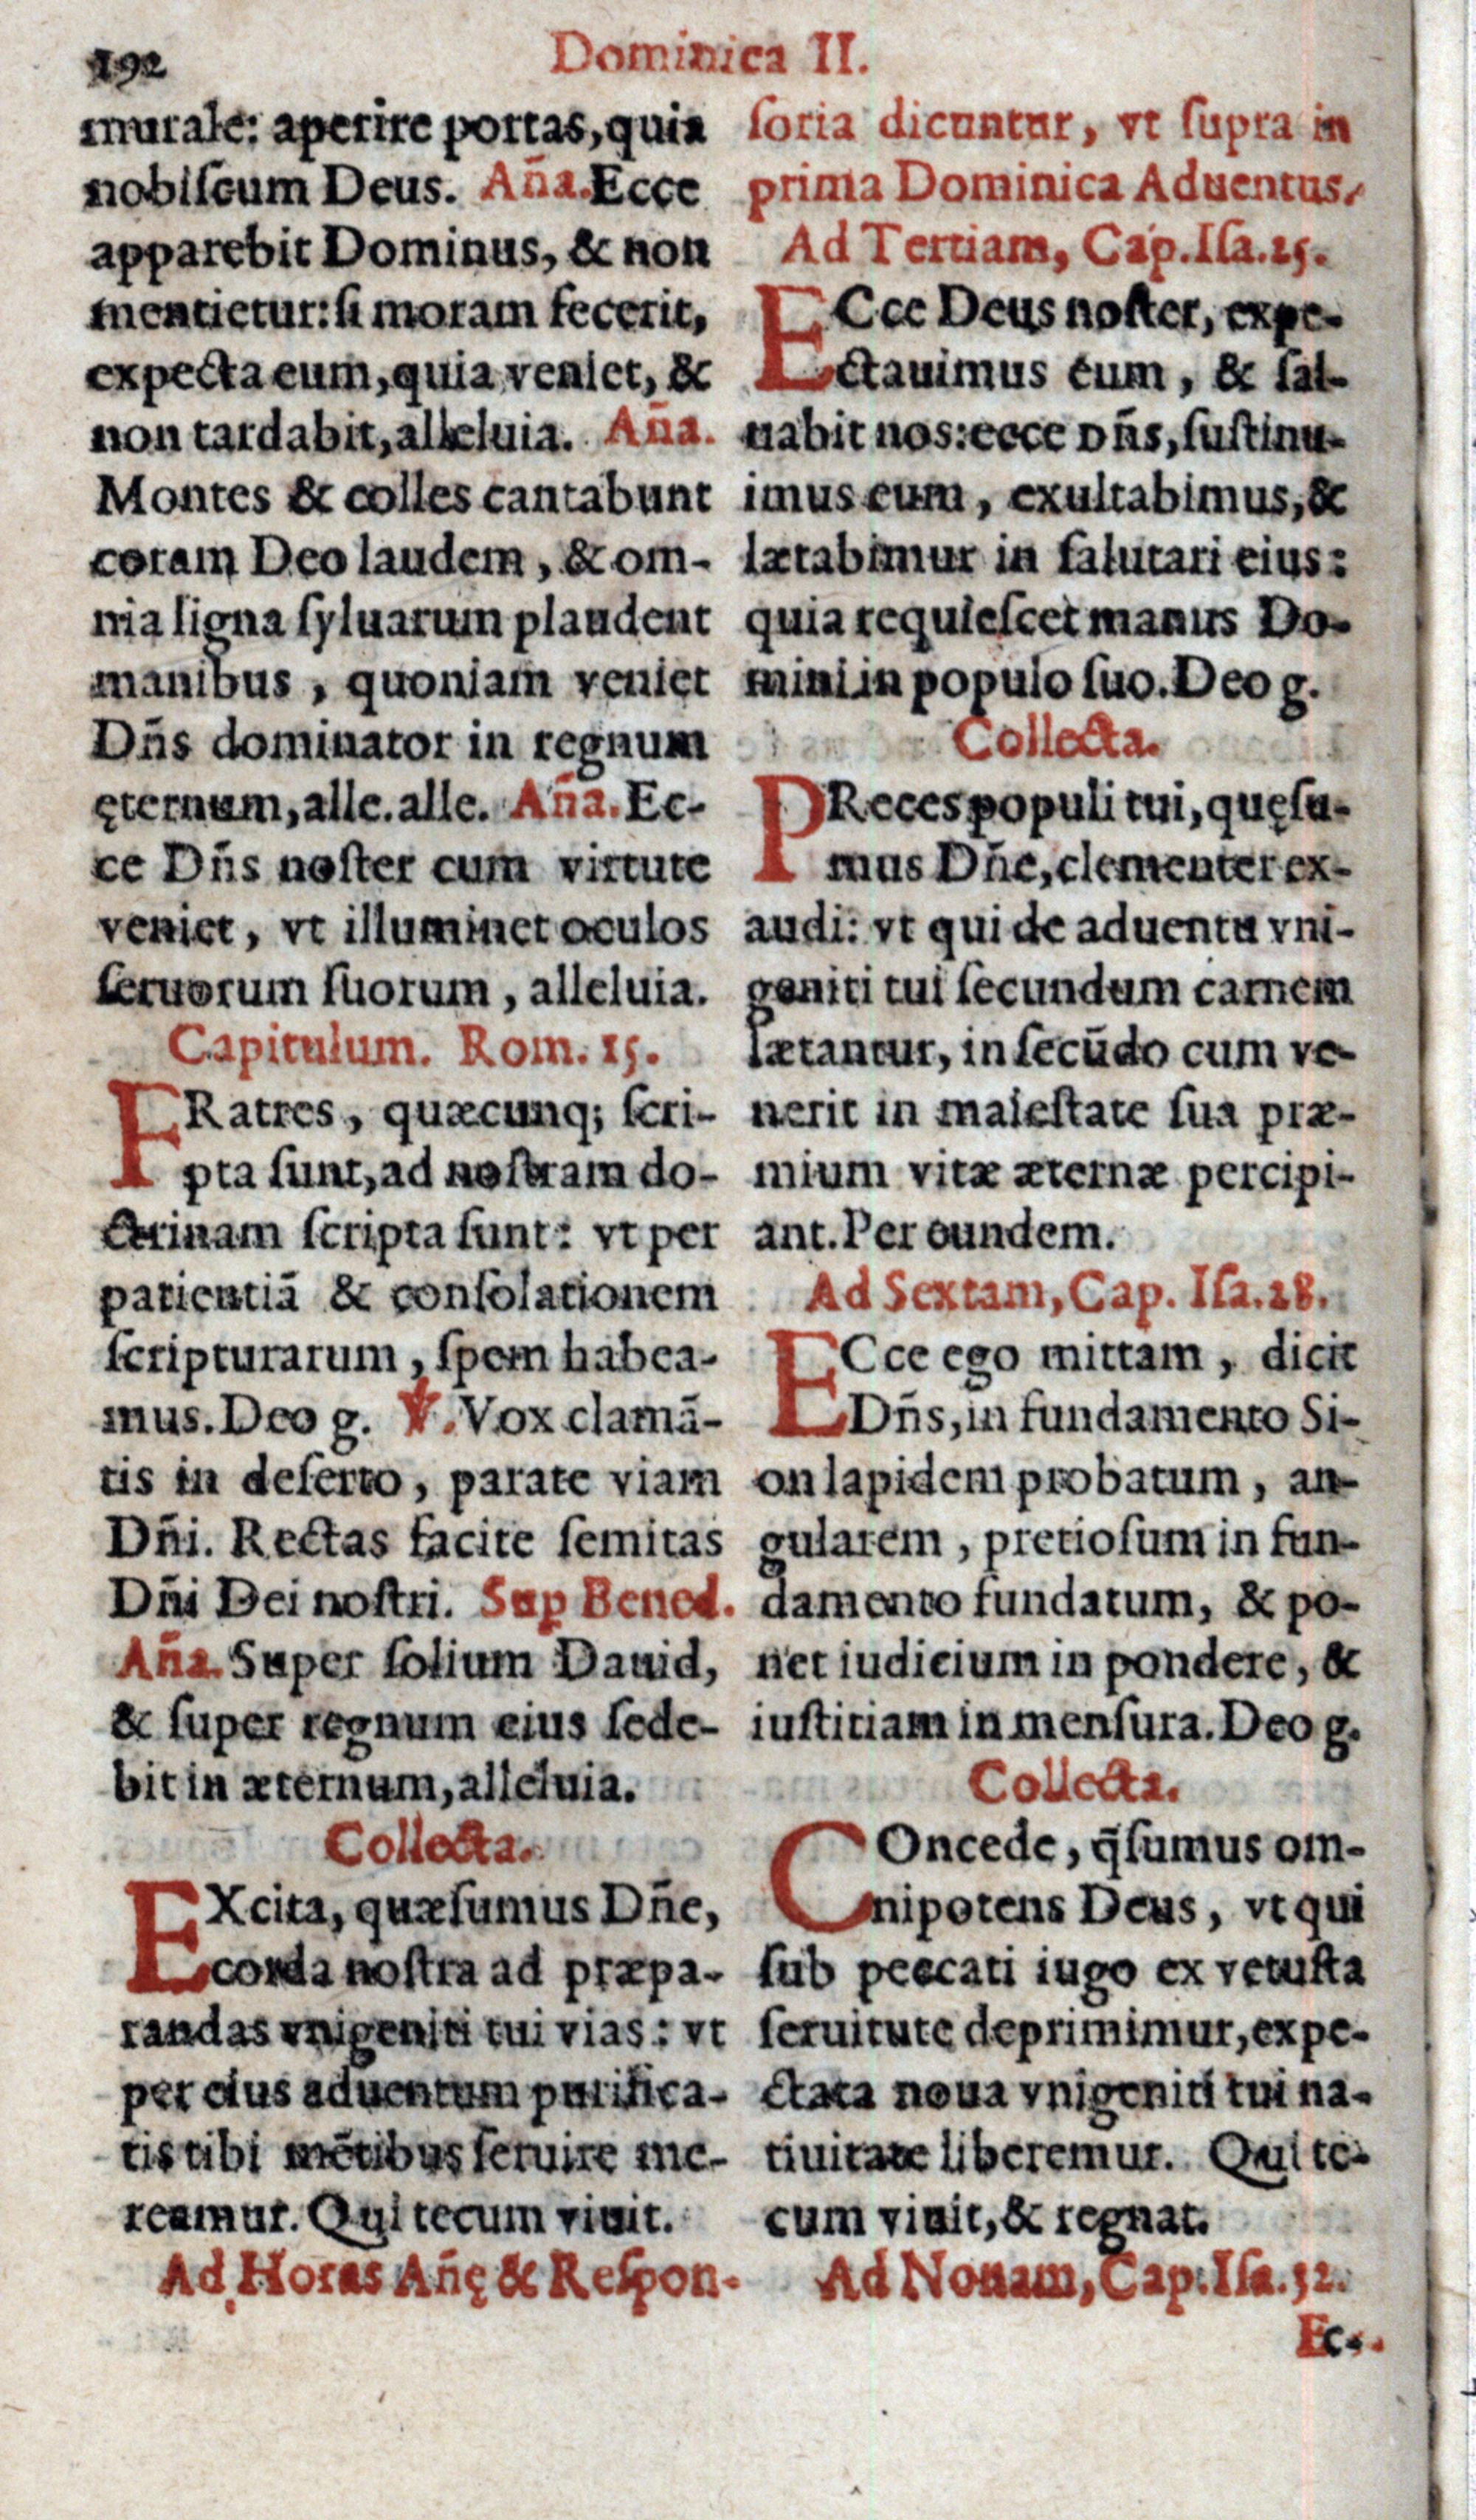 192
Dominica II.
murale: aperire portas, quia
nobiſcum Deus. Aña. Ecce
apparebit Dominus, & non
mentietur: ſi moram fecerit,
expecta eum, quia veniet, &
non tardabit, alleluia. Aña.
Montes & colles cantabunt
coram Deo laudem, & om-
nia ligna ſyluarum plaudent
manibus, quoniam veniet
Dñs dominator in regnum
ęternum, alle. alle. Aña. Ec-
ce Dñs noſter cum virtute
veniet, vt illuminet oculos
ſeruorum ſuorum, alleluia.
Capitulum. Rom. 15.
FRatres, quæcunq; ſcri-
pta ſunt, ad noſtram do-
ctrinam ſcripta ſunt: vt per
patientiã & conſolationem
ſcripturarum, ſpem habea-
mus. Deo g. ℣. Vox clamã-
tis in deſerto, parate viam
Dñi. Rectas facite ſemitas
Dñi Dei noſtri. Sup Bened.
Aña. Super ſolium Dauid,
& ſuper regnum eius ſede-
bit in æternum, alleluia.
Collecta.
EXcita, quæſumus Dñe,
corda noſtra ad præpa-
randas vnigeniti tui vias: vt
per eius aduentum purifica-
tis tibi mẽtibus ſeruire me-
reamur. Qui tecum viuit.
Ad Horas Añę & Reſpon-
ſoria dicuntur, vt ſupra in
prima Dominica Aduentus.
Ad Tertiam, Cap. Iſa. 25.
ECce Deus noſter, expe-
ctauimus eum, & ſal-
uabit nos: ecce Dñs, ſuſtinu-
imus eum, exultabimus, &
lætabimur in ſalutari eius:
quia requieſcet manus Do-
mini in populo ſuo. Deo g.
Collecta.
PReces populi tui, quęſu-
mus Dñe, clementer ex-
audi: vt qui de aduentu vni-
geniti tui ſecundum carnem
lætantur, in ſecũdo cum ve-
nerit in maieſtate ſua præ-
mium vitæ æternæ percipi-
ant. Per eundem.
Ad Sextam, Cap. Iſa. 28.
ECce ego mittam, dicit
Dñs, in fundamento Si-
on lapidem probatum, an-
gularem, pretioſum in fun-
damento fundatum, & po-
net iudicium in pondere, &
iuſtitiam in menſura. Deo g.
Collecta.
COncede, q̃ſumus om-
nipotens Deus, vt qui
ſub peccati iugo ex vetuſta
ſeruitute deprimimur, expe-
ctata noua vnigeniti tui na-
tiuitate liberemur. Qui te-
cum viuit, & regnat.
Ad Nonam, Cap. Iſa. 32.
Ec-